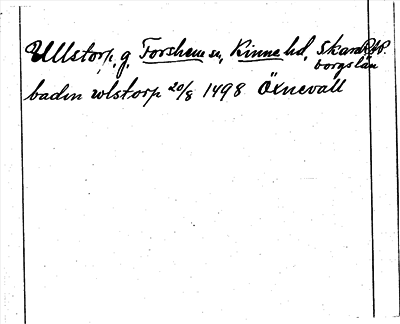 Ullstorp. g. Forshem sn, Kinne hd, Skara-
borgs län
badin wlstorp 20/8 1498 Öxnevall